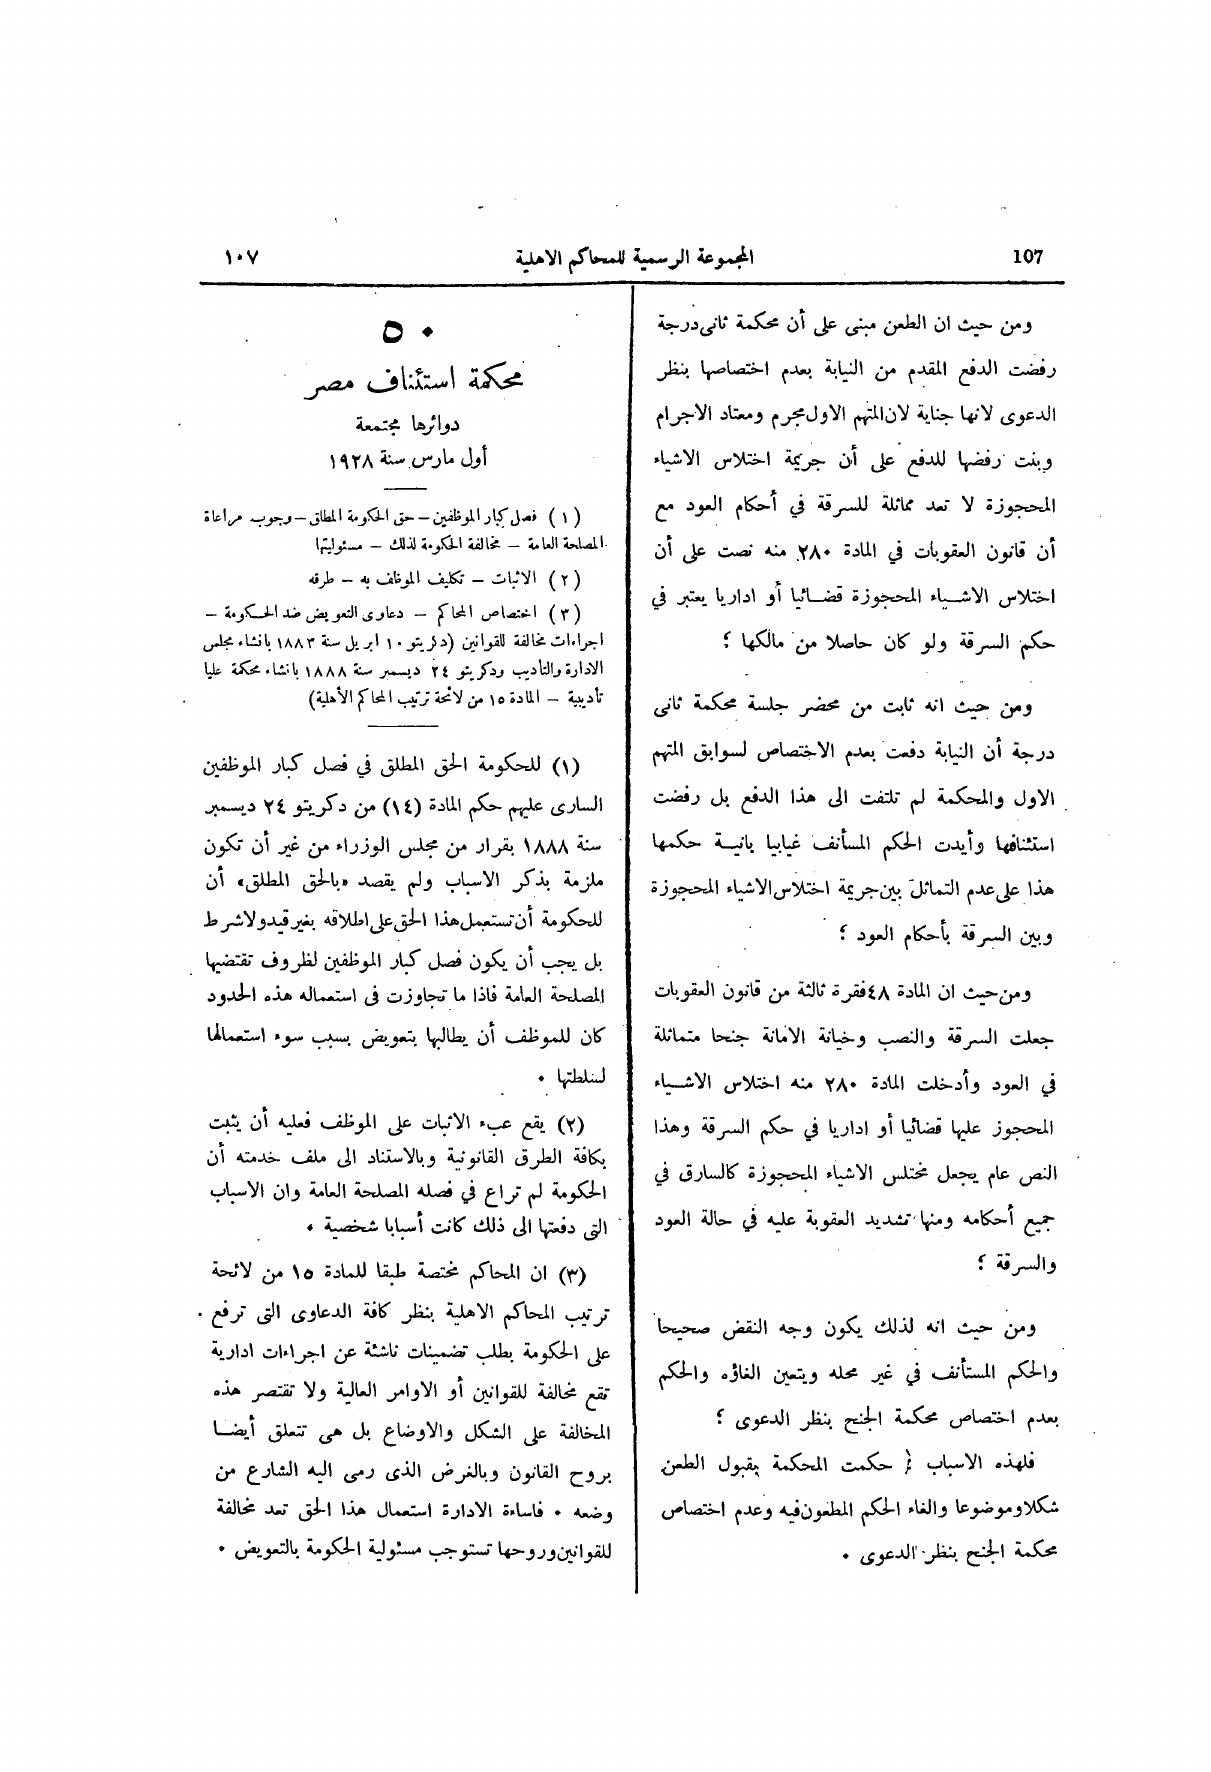 107
المجموعة الرسمية للمحاكم الاهلية
١٠٧
ومن حيث ان الطعن مبنى على أن محكمة ثانى درجة
رفضت الدفع المقدم من النيابة بعدم اختصاصها بنظر
الدعوى لانها جناية لان المتهم الاول مجرم ومعتاد الاجرام
وبنت رفضها للدفع على أن جريمة اختلاس الاشياء
المحجوزة لا تعد مماثلة للسرقة في أحكام العود مع
أن قانون العقوبات في المادة ٢٨٠ منه نصت على أن
اختلاس الاشياء المحجوزة قضائيا أو اداريا يعتبر في
حكم السرقة ولو كان حاصلا من مالكها ؛
ومن حيث انه ثابت من محضر جلسة محكمة ثانى
درجة أن النيابة دفعت بعدم الاختصاص لسوابق المتهم
الاول والمحكمة لم تلتفت الى هذا الدفع بل رفضت
استئنافها وأيدت الحكم المسأنف غيابيا بانية حكمها
هذا على عدم التماثل بين جريمة اختلاس الاشياء المحجوزة
وبين السرقة بأحكام العود ؛
ومن حيث ان المادة ٤٨ فقرة ثالثة من قانون العقوبات
جعلت السرقة والنصب وخيانة الامانة جنحا متماثلة
في العود وأدخلت المادة ٢٨٠ منه اختلاس الاشياء
المحجوز عليها قضائيا أو اداريا في حكم السرقة وهذا
النص عام يجعل مختلس الاشياء المحجوزة كالسارق في
جميع أحكامه ومنها تشديد العقوبة عليه في حالة العود
والسرقة ؛
ومن حيث انه لذلك يكون وجه النقض صحيحا
والحكم المستأنف في غير محله ويتعين الغاؤه والحكم
بعدم اختصاص محكمة الجنح بنظر الدعوى ؛
فلهذه الاسباب حكمت المحكمة بقبول الطعن
شكلا وموضوعا والغاء الحكم المطعون فيه وعدم اختصاص
محكمة الجنح بنظر الدعوى .
٥٠
محكمة استئناف مصر
دوائرها مجتمعة
أول مارس سنة ١٩٢٨
(١) فصل كبار الموظفين – حق الحكومة المطلق – وجوب مراعاة
المصلحة العامة – مخالفة الحكومة لذلك – مسئوليتها
(٢) الاثبات – تكليف الموظف به – طرقه
(٣) اختصاص المحاكم – دعاوى التعويض ضد الحكومة –
اجراءات مخالفة للقوانين (دكريتو ١٠ ابريل سنة ١٨٨٣ بانشاء مجلس
الادارة والتأديب ودكريتو ٢٤ ديسمبر سنة ١٨٨٨ بانشاء محكمة عليا
تأديبية – المادة ١٥ من لائحة ترتيب المحاكم الأهلية)
(١) للحكومة الحق المطلق في فصل كبار الموظفين
السارى عليهم حكم المادة (١٤) من دكريتو ٢٤ ديسمبر
سنة ١٨٨٨ بقرار من مجلس الوزراء من غير أن تكون
ملزمة بذكر الاسباب ولم يقصد «بالحق المطلق» أن
للحكومة أن تستعمل هذا الحق على اطلاقه بغير قيد ولا شرط
بل يجب أن يكون فصل كبار الموظفين لظروف تقتضيها
المصلحة العامة فاذا ما تجاوزت فى استعماله هذه الحدود
كان للموظف أن يطالبها بتعويض بسبب سوء استعمالها
لسلطتها .
(٢) يقع عبء الاثبات على الموظف فعليه أن يثبت
بكافة الطرق القانونية وبالاستناد الى ملف خدمته أن
الحكومة لم تراع في فصله المصلحة العامة وان الاسباب
التى دفعتها الى ذلك كانت أسبابا شخصية .
(٣) ان المحاكم مختصة طبقا للمادة ١٥ من لائحة
ترتيب المحاكم الاهلية بنظر كافة الدعاوى التى ترفع
على الحكومة بطلب تضمينات ناشئة عن اجراءات ادارية
تقع مخالفة للقوانين أو الاوامر العالية ولا تقتصر هذه
المخالفة على الشكل والاوضاع بل هى تتعلق أيضا
بروح القانون وبالغرض الذى رمى اليه الشارع من
وضعه . فاساءة الادارة استعمال هذا الحق تعد مخالفة
للقوانين وروحها تستوجب مسئولية الحكومة بالتعويض .